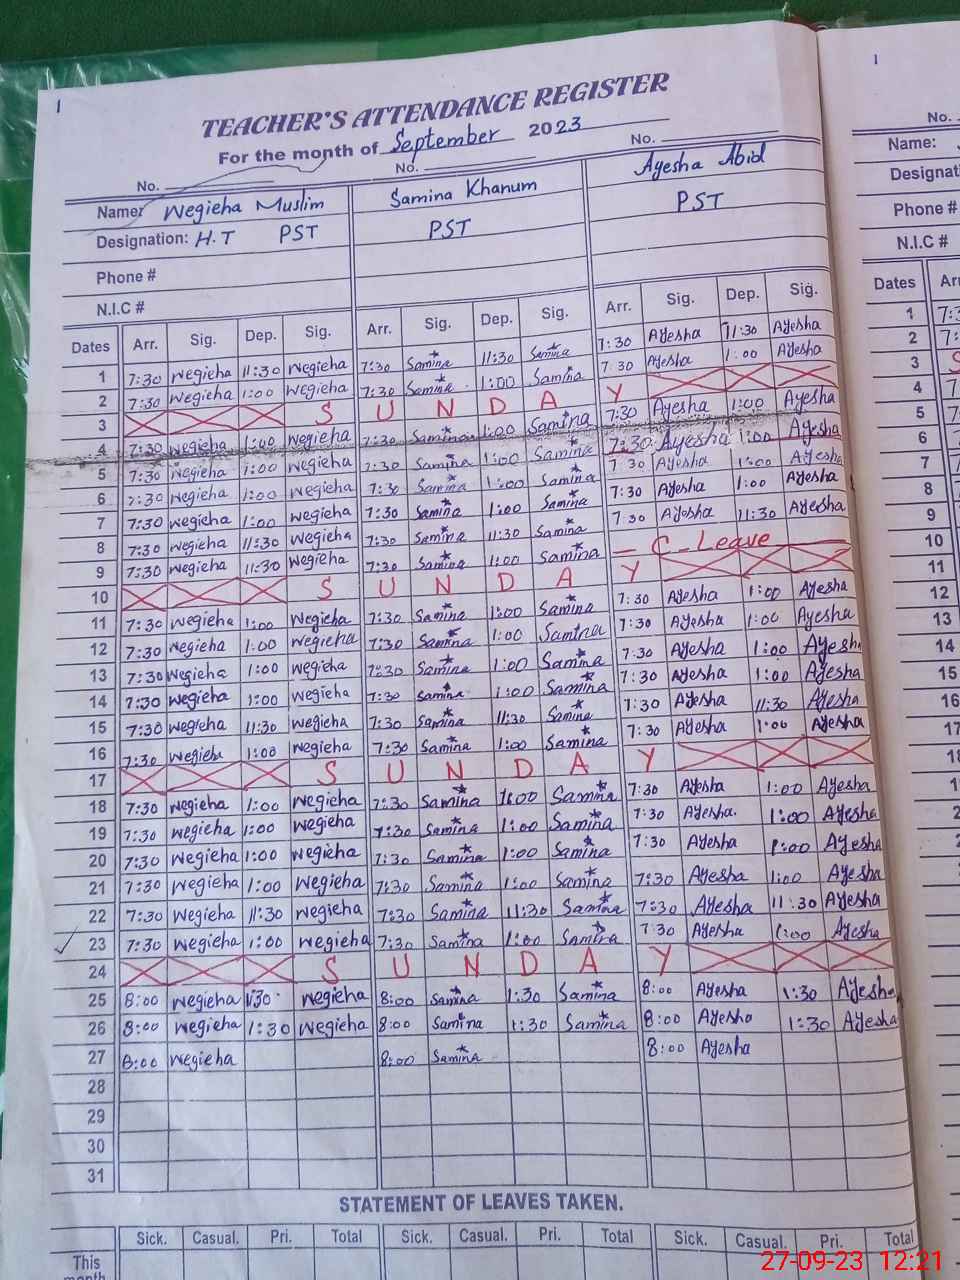 1
1
TEACHER'S ATTENDANCE REGISTER
For the month of September 2023
No. No. No. No.
Name: Wegieha Muslim Samina Khanum Ayesha Abid Name:
Designation: H.T PST PST PST
Phone # Phone #
N.I.C # N.I.C #
Dates Arr. Sig. Dep. Sig. Arr. Sig. Dep. Sig. Arr. Sig. Dep. Sig. Dates
1 7:30 Wegieha 11:30 Wegieha 7:30 Samina 11:30 Samina 7:30 Ayesha 11:30 Ayesha 1
2 7:30 Wegieha 1:00 Wegieha 7:30 Samina 1:00 Samina 7:30 Ayesha 1:00 Ayesha 2
3 S U N D A Y 3
4 7:30 Wegieha 1:00 Wegieha 7:30 Samina 1:00 Samina 7:30 Ayesha 1:00 Ayesha 4
5 7:30 Wegieha 1:00 Wegieha 7:30 Samina 1:00 Samina 7:30 Ayesha 1:00 Ayesha 5
6 7:30 Wegieha 1:00 Wegieha 7:30 Samina 1:00 Samina 7:30 Ayesha 1:00 Ayesha 6
7 7:30 Wegieha 1:00 Wegieha 7:30 Samina 1:00 Samina 7:30 Ayesha 1:00 Ayesha 7
8 7:30 Wegieha 11:30 Wegieha 7:30 Samina 11:30 Samina 7:30 Ayesha 11:30 Ayesha 8
9 7:30 Wegieha 11:30 Wegieha 7:30 Samina 1:00 Samina – C – Leave 9
10 S U N D A Y 10
11 7:30 Wegieha 1:00 Wegieha 7:30 Samina 1:00 Samina 7:30 Ayesha 1:00 Ayesha 11
12 7:30 Wegieha 1:00 Wegieha 7:30 Samina 1:00 Samina 7:30 Ayesha 1:00 Ayesha 12
13 7:30 Wegieha 1:00 Wegieha 7:30 Samina 1:00 Samina 7:30 Ayesha 1:00 Ayesha 13
14 7:30 Wegieha 1:00 Wegieha 7:30 Samina 1:00 Samina 7:30 Ayesha 1:00 Ayesha 14
15 7:30 Wegieha 11:30 Wegieha 7:30 Samina 11:30 Samina 7:30 Ayesha 11:30 Ayesha 15
16 7:30 Wegieha 1:00 Wegieha 7:30 Samina 1:00 Samina 7:30 Ayesha 1:00 Ayesha 16
17 S U N D A Y 17
18 7:30 Wegieha 1:00 Wegieha 7:30 Samina 1:00 Samina 7:30 Ayesha 1:00 Ayesha
19 7:30 Wegieha 1:00 Wegieha 7:30 Samina 1:00 Samina 7:30 Ayesha 1:00 Ayesha
20 7:30 Wegieha 1:00 Wegieha 7:30 Samina 1:00 Samina 7:30 Ayesha 1:00 Ayesha
21 7:30 Wegieha 1:00 Wegieha 7:30 Samina 1:00 Samina 7:30 Ayesha 1:00 Ayesha
22 7:30 Wegieha 11:30 Wegieha 7:30 Samina 11:30 Samina 7:30 Ayesha 11:30 Ayesha
23 7:30 Wegieha 1:00 Wegieha 7:30 Samina 1:00 Samina 7:30 Ayesha 1:00 Ayesha
24 S U N D A Y
25 8:00 Wegieha 1:30 Wegieha 8:00 Samina 1:30 Samina 8:00 Ayesha 1:30 Ayesha
26 8:00 Wegieha 1:30 Wegieha 8:00 Samina 1:30 Samina 8:00 Ayesha 1:30 Ayesha
27 8:00 Wegieha 8:00 Samina 8:00 Ayesha
28
29
30
31
STATEMENT OF LEAVES TAKEN.
Sick. Casual. Pri. Total Sick. Casual. Pri. Total Sick. Casual. Pri. Total
This month
27-09-23 12:21